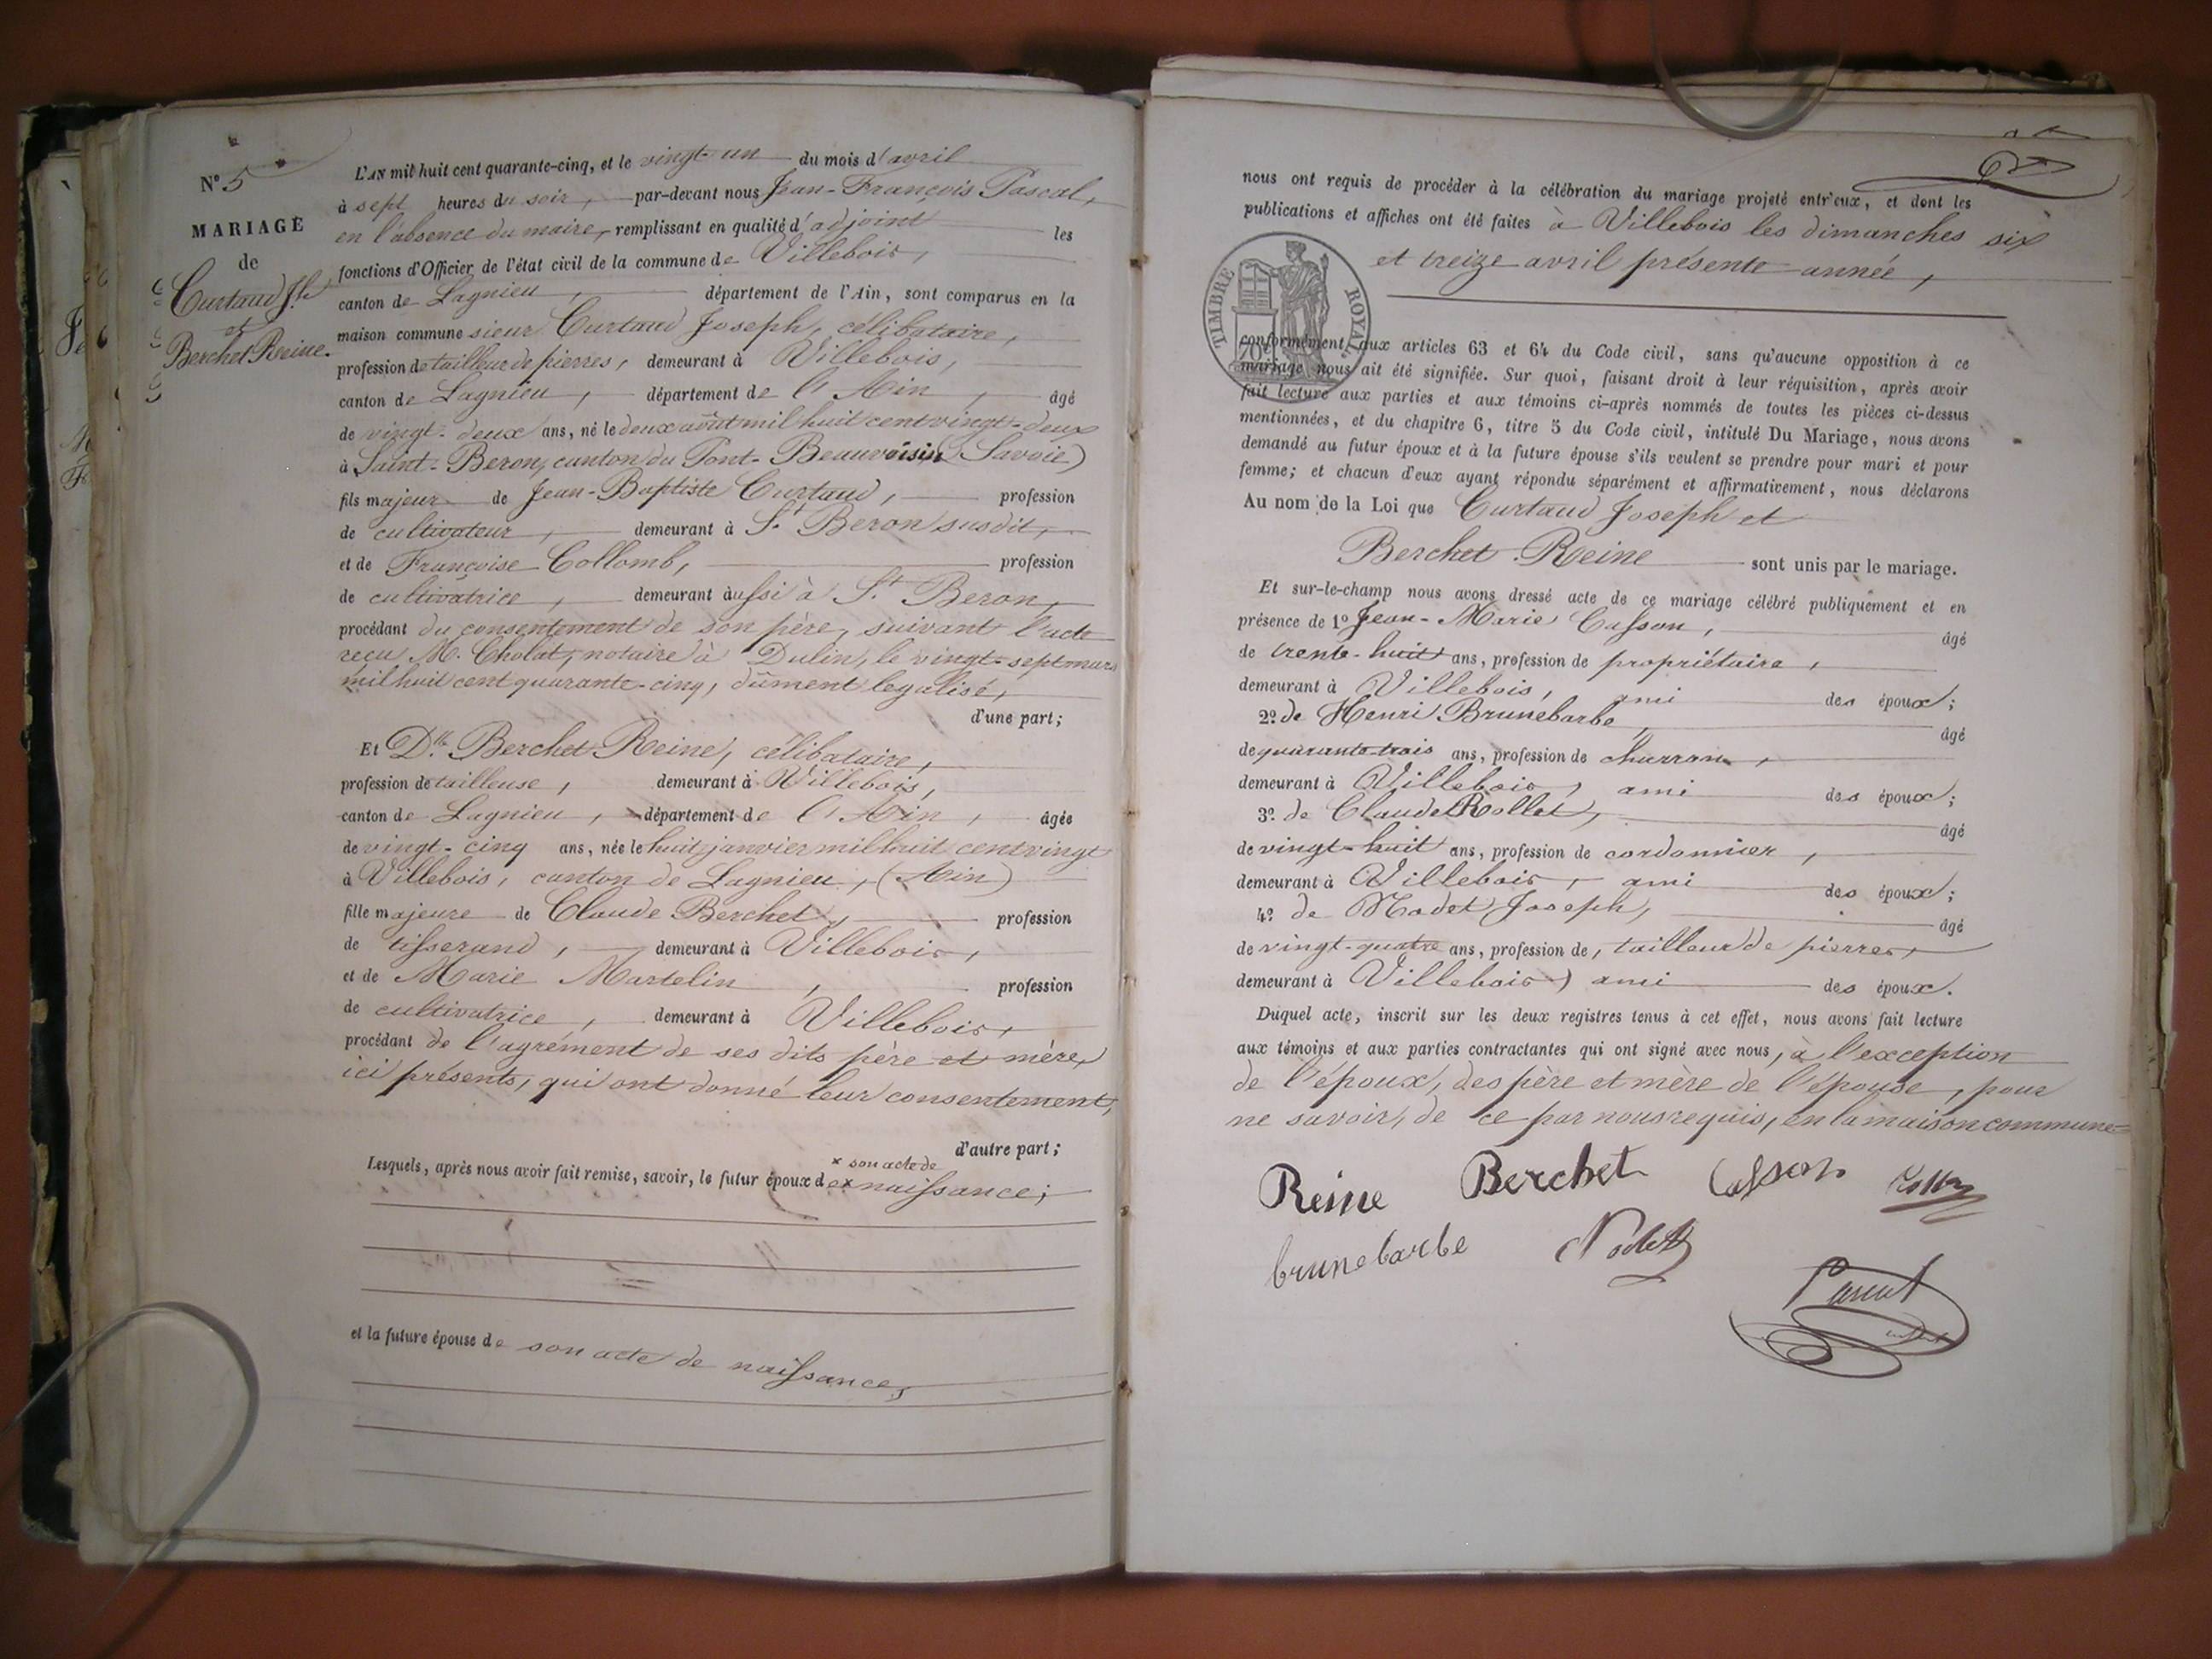 N° 5
MARIAGE
de
Curtaud Jh
et
Berchet Reine.
L'AN mil huit cent quarante-cinq, et le vingt-un du mois d'avril
à sept heures du soir, par-devant nous Jean-François Pascal,
en l'absence du maire, remplissant en qualité d'adjoint les
fonctions d'Officier de l'état civil de la commune de Villebois,
canton de Lagnieu, département de l'Ain, sont comparus en la
maison commune sieur Curtaud Joseph, célibataire,
profession de tailleur de pierres, demeurant à Villebois,
canton de Lagnieu, département de l'Ain, âgé
de vingt-deux ans, né le deux août mil huit cent vingt-deux
à Saint-Beron, canton du Pont-Beauvoisin (Savoie)
fils majeur de Jean-Baptiste Curtaud, profession
de cultivateur, demeurant à St Beron susdit,
et de Françoise Collomb, profession
de cultivatrice, demeurant aussi à St Beron,
procédant du consentement de son père, suivant l'acte
reçu M. Cholat, notaire à Dulin, le vingt-sept mars
mil huit cent quarante-cinq, dûment legalisé,
d'une part;
Et Dlle Berchet Reine, célibataire,
profession de tailleuse, demeurant à Villebois,
canton de Lagnieu, département de l'Ain, âgée
de vingt-cinq ans, née le huit janvier mil huit cent vingt
à Villebois, canton de Lagnieu, (Ain)
fille majeure de Claude Berchet, profession
de tisserand, demeurant à Villebois,
et de Marie Martelin, profession
de cultivatrice, demeurant à Villebois,
procédant de l'agrément de ses dits père et mère,
ici présents, qui ont donné leur consentement,
d'autre part;
x son acte de
Lesquels, après nous avoir fait remise, savoir, le futur époux de x naissance;
et la future épouse de son acte de naissance,
nous ont requis de procéder à la célébration du mariage projeté entr'eux, et dont les
publications et affiches ont été faites à Villebois les dimanches six
et treize avril présente année,
TIMBRE ROYAL
70c
conformément aux articles 63 et 64 du Code civil, sans qu'aucune opposition à ce
mariage nous ait été signifiée. Sur quoi, faisant droit à leur réquisition, après avoir
fait lecture aux parties et aux témoins ci-après nommés de toutes les pièces ci-dessus
mentionnées, et du chapitre 6, titre 5 du Code civil, intitulé Du Mariage, nous avons
demandé au futur époux et à la future épouse s'ils veulent se prendre pour mari et pour
femme; et chacun d'eux ayant répondu séparément et affirmativement, nous déclarons
Au nom de la Loi que Curtaud Joseph et
Berchet Reine sont unis par le mariage.
Et sur-le-champ nous avons dressé acte de ce mariage célébré publiquement et en
présence de 1º Jean-Marie Casson, âgé
de trente-huit ans, profession de propriétaire,
demeurant à Villebois, ami des époux;
2º de Henri Brunebarbe, âgé
de quarante-trois ans, profession de charron,
demeurant à Villebois, ami des époux;
3º de Claude Rollet, âgé
de vingt-huit ans, profession de cordonnier,
demeurant à Villebois, ami des époux;
4º de Nodet Joseph, âgé
de vingt-quatre ans, profession de, tailleur de pierres,
demeurant à Villebois, ami des époux.
Duquel acte, inscrit sur les deux registres tenus à cet effet, nous avons fait lecture
aux témoins et aux parties contractantes qui ont signé avec nous, à l'exception
de l'époux, des père et mère de l'épouse, pour
ne savoir, de ce par nous requis, en la maison commune
Reine Berchet Casson
brunebarbe Nodet
Pascal